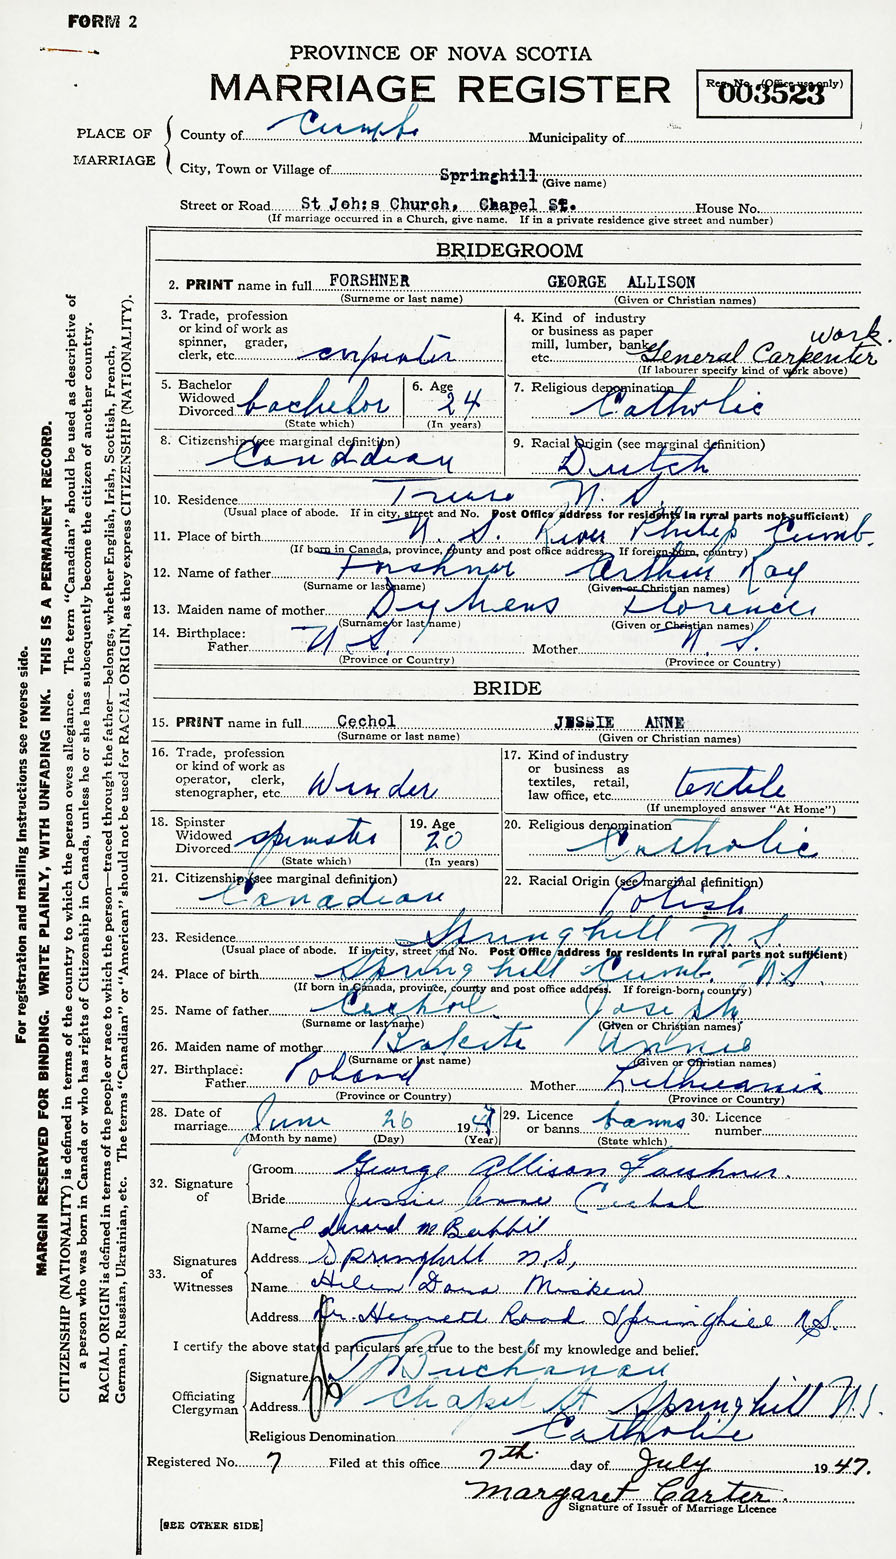 FORM 2
PROVINCE OF NOVA SCOTIA
MARRIAGE REGISTER
Reg. No. (Office use only)
003523
PLACE OF MARRIAGE
County of Cumb. Municipality of
City, Town or Village of Springhill
(Give name)
Street or Road St Joh:s Church, Chapel St. House No.
(If marriage occurred in a Church, give name. If in a private residence give street and number)
BRIDEGROOM
2. PRINT name in full FORSHNER GEORGE ALLISON
(Surname or last name) (Given or Christian names)
3. Trade, profession or kind of work as spinner, grader, clerk, etc. carpenter
4. Kind of industry or business as paper mill, lumber, bank, etc. General Carpenter work.
(If labourer specify kind of work above)
5. Bachelor Widowed Divorced bachelor
(State which)
6. Age 24
(In years)
7. Religious denomination Catholic
8. Citizenship (see marginal definition) Canadian
9. Racial Origin (see marginal definition) Dutch
10. Residence Truro N. S.
(Usual place of abode. If in city, street and No. Post Office address for residents in rural parts not sufficient)
11. Place of birth N. S. River Philip Cumb.
(If born in Canada, province, county and post office address. If foreign-born, country)
12. Name of father Forshner Arthur Ray
(Surname or last name) (Given or Christian names)
13. Maiden name of mother Florence
(Surname or last name) (Given or Christian names)
14. Birthplace: Father N S. Mother N. S.
(Province or Country) (Province or Country)
BRIDE
15. PRINT name in full Cechol JESSIE ANNE
(Surname or last name) (Given or Christian names)
16. Trade, profession or kind of work as operator, clerk, stenographer, etc. Winder
17. Kind of industry or business as textiles, retail, law office, etc. textile
(If unemployed answer "At Home")
18. Spinster Widowed Divorced spinster
(State which)
19. Age 20
(In years)
20. Religious denomination Catholic
21. Citizenship (see marginal definition) Canadian
22. Racial Origin (see marginal definition) Polish
23. Residence Springhill N. S.
(Usual place of abode. If in city, street and No. Post Office address for residents in rural parts not sufficient)
24. Place of birth Springhill Cumb. N.S.
(If born in Canada, province, county and post office address. If foreign-born, country)
25. Name of father Cechol Joseph
(Surname or last name) (Given or Christian names)
26. Maiden name of mother Annie
(Surname or last name) (Given or Christian names)
27. Birthplace: Father Poland Mother Lithuania
(Province or Country) (Province or Country)
28. Date of marriage June 26 1947
(Month by name) (Day) (Year)
29. Licence or banns banns
(State which)
30. Licence number
32. Signature of
Groom George Allison Forshner
Bride Jessie Anne Cechol
33. Signatures of Witnesses
Name Edward M
Address Springhill N.S,
Name Helen Dana
Address Road Springhill N.S.
I certify the above stated particulars are true to the best of my knowledge and belief.
Officiating Clergyman
Signature Buchanan
Address Chapel St Springhill N.S.
Religious Denomination Catholic
Registered No. 7 Filed at this office 7th day of July 1947.
Margaret Carter.
Signature of Issuer of Marriage Licence
[SEE OTHER SIDE]
For registration and mailing instructions see reverse side.
MARGIN RESERVED FOR BINDING. WRITE PLAINLY, WITH UNFADING INK. THIS IS A PERMANENT RECORD.
CITIZENSHIP (NATIONALITY) is defined in terms of the country to which the person owes allegiance. The term "Canadian" should be used as descriptive of
a person who was born in Canada or who has rights of Citizenship in Canada, unless he or she has subsequently become the citizen of another country.
RACIAL ORIGIN is defined in terms of the people or race to which the person—traced through the father—belongs, whether English, Irish, Scottish, French,
German, Russian, Ukrainian, etc. The terms "Canadian" or "American" should not be used for RACIAL ORIGIN, as they express CITIZENSHIP (NATIONALITY).